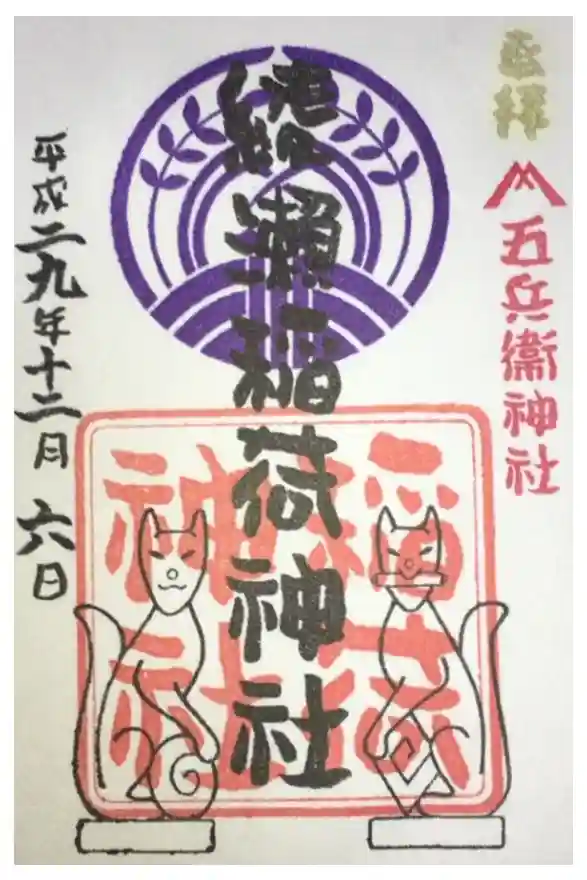 奉拝
五兵衛神社
綾瀬稲荷神社
稲荷
神社
平成二九年十二月 六日